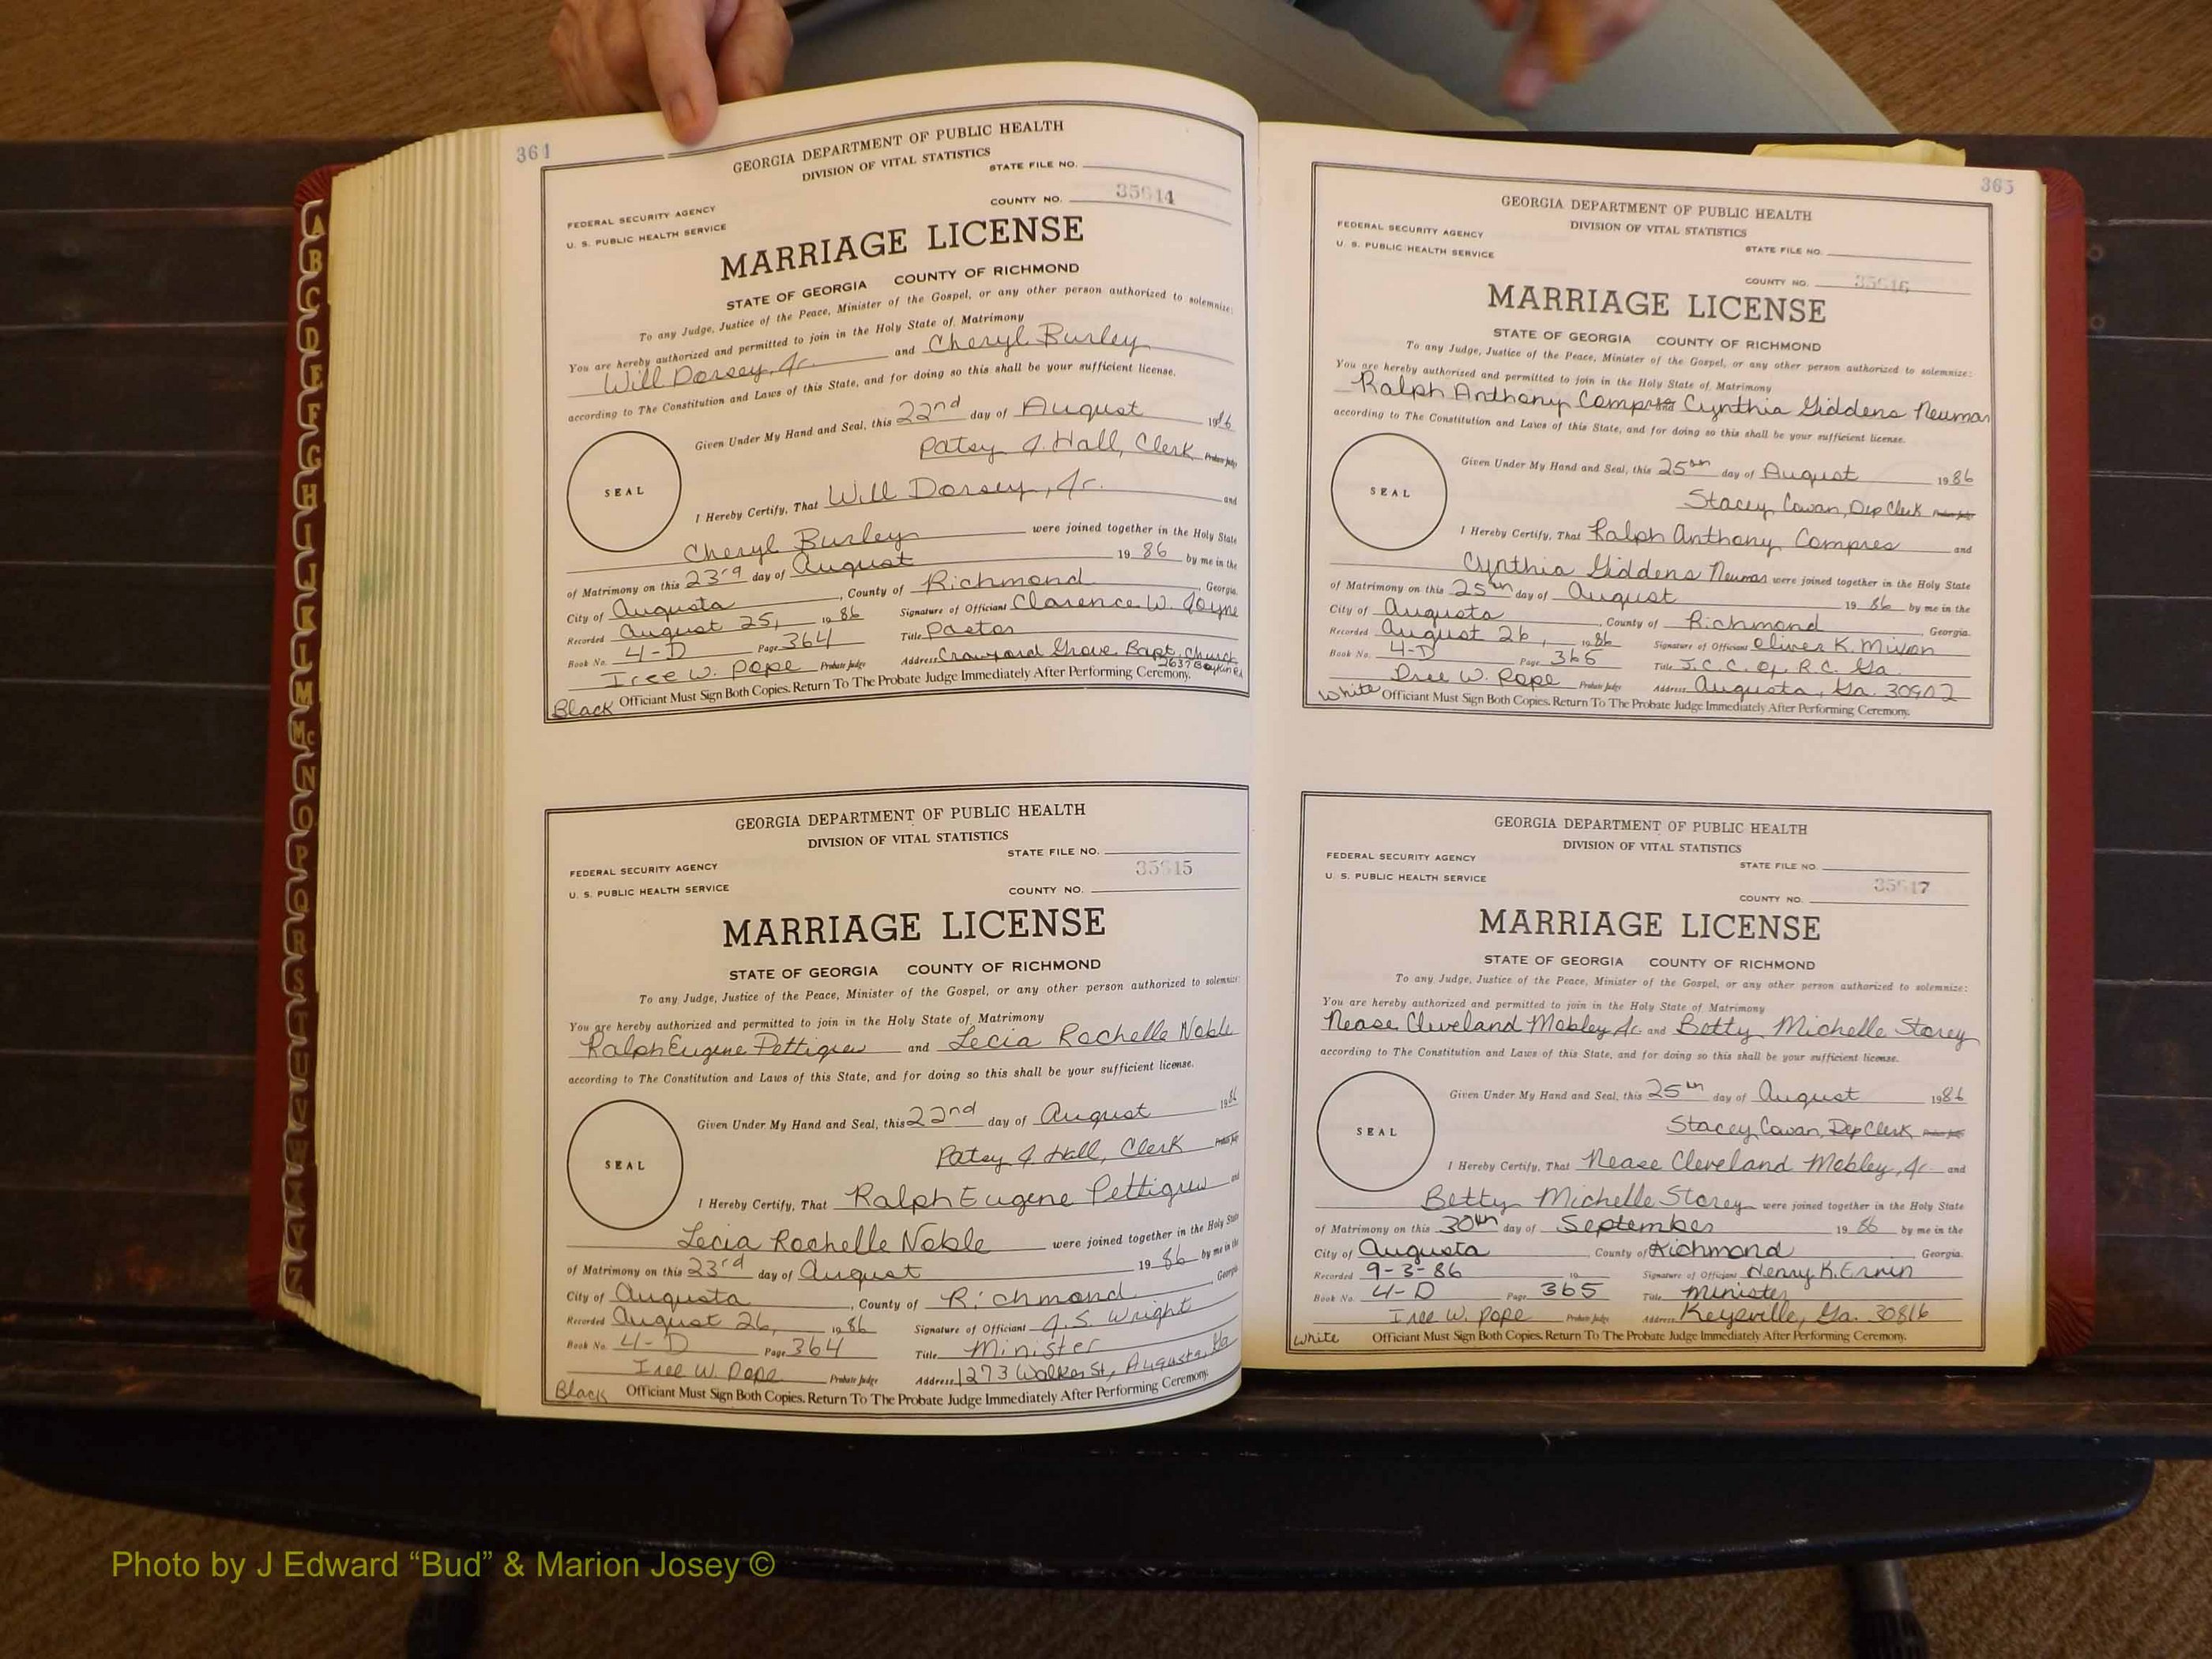 364
GEORGIA DEPARTMENT OF PUBLIC HEALTH
DIVISION OF VITAL STATISTICS
STATE FILE NO.
COUNTY NO. 35614
FEDERAL SECURITY AGENCY
U. S. PUBLIC HEALTH SERVICE
MARRIAGE LICENSE
STATE OF GEORGIA COUNTY OF RICHMOND
To any Judge, Justice of the Peace, Minister of the Gospel, or any other person authorized to solemnize:
You are hereby authorized and permitted to join in the Holy State of Matrimony
Will Dorsey, Jr. and Cheryl Burley
according to The Constitution and Laws of this State, and for doing so this shall be your sufficient license.
Given Under My Hand and Seal, this 22nd day of August 1986
Patsy J. Hall, Clerk Probate Judge
SEAL
I Hereby Certify, That Will Dorsey, Jr. and
Cheryl Burley were joined together in the Holy State
of Matrimony on this 23rd day of August 19 86 by me in the
City of Augusta, County of Richmond, Georgia.
Recorded August 25, 19 86 Signature of Officiant Clarence W. Joyne
Book No. 4-D Page 364 Title Pastor
Iree W. Pope Probate Judge Address Crawford Grove Bapt. Church
2637 Boykin Rd
Black Officiant Must Sign Both Copies. Return To The Probate Judge Immediately After Performing Ceremony.
GEORGIA DEPARTMENT OF PUBLIC HEALTH
DIVISION OF VITAL STATISTICS
STATE FILE NO.
35615
FEDERAL SECURITY AGENCY
U. S. PUBLIC HEALTH SERVICE
COUNTY NO.
MARRIAGE LICENSE
STATE OF GEORGIA COUNTY OF RICHMOND
To any Judge, Justice of the Peace, Minister of the Gospel, or any other person authorized to solemnize:
You are hereby authorized and permitted to join in the Holy State of Matrimony
Ralph Eugene Pettigrew and Lecia Rochelle Noble
according to The Constitution and Laws of this State, and for doing so this shall be your sufficient license.
Given Under My Hand and Seal, this 22nd day of August 1986
Patsy J. Hall, Clerk Probate Judge
SEAL
I Hereby Certify, That Ralph Eugene Pettigrew and
Lecia Rochelle Noble were joined together in the Holy State
of Matrimony on this 23rd day of August 19 86 by me in the
City of Augusta, County of Richmond, Georgia
Recorded August 26, 19 86 Signature of Officiant J. S. Wright
Book No. 4-D Page 364 Title Minister
Iree W. Pope Probate Judge Address 1273 Walker St, Augusta, Ga
Black Officiant Must Sign Both Copies. Return To The Probate Judge Immediately After Performing Ceremony.
365
GEORGIA DEPARTMENT OF PUBLIC HEALTH
DIVISION OF VITAL STATISTICS
FEDERAL SECURITY AGENCY
U. S. PUBLIC HEALTH SERVICE
STATE FILE NO.
COUNTY NO. 35616
MARRIAGE LICENSE
STATE OF GEORGIA COUNTY OF RICHMOND
To any Judge, Justice of the Peace, Minister of the Gospel, or any other person authorized to solemnize:
You are hereby authorized and permitted to join in the Holy State of Matrimony
Ralph Anthony Compres and Cynthia Giddens Neumas
according to The Constitution and Laws of this State, and for doing so this shall be your sufficient license.
Given Under My Hand and Seal, this 25th day of August 1986
Stacey Cowan, Dep Clerk Probate Judge
SEAL
I Hereby Certify, That Ralph Anthony Compres and
Cynthia Giddens Neumas were joined together in the Holy State
of Matrimony on this 25th day of August 19 86 by me in the
City of Augusta, County of Richmond, Georgia.
Recorded August 26, 1986 Signature of Officiant Oliver K. Mixon
Book No. 4-D Page 365 Title J.C.C. Of. R.C. Ga.
Iree W. Pope Probate Judge Address Augusta, Ga. 30902
White Officiant Must Sign Both Copies. Return To The Probate Judge Immediately After Performing Ceremony.
GEORGIA DEPARTMENT OF PUBLIC HEALTH
DIVISION OF VITAL STATISTICS
FEDERAL SECURITY AGENCY
U. S. PUBLIC HEALTH SERVICE
STATE FILE NO.
35617
COUNTY NO.
MARRIAGE LICENSE
STATE OF GEORGIA COUNTY OF RICHMOND
To any Judge, Justice of the Peace, Minister of the Gospel, or any other person authorized to solemnize:
You are hereby authorized and permitted to join in the Holy State of Matrimony
Nease Cleveland Mobley, Jr. and Betty Michelle Storey
according to The Constitution and Laws of this State, and for doing so this shall be your sufficient license.
Given Under My Hand and Seal, this 25th day of August 1986
Stacey Cowan, Dep Clerk Probate Judge
SEAL
I Hereby Certify, That Nease Cleveland Mobley, Jr. and
Betty Michelle Storey were joined together in the Holy State
of Matrimony on this 30th day of September 19 86 by me in the
City of Augusta, County of Richmond, Georgia.
Recorded 9-3-86 19 Signature of Officiant Henry K. Ervin
Book No. 4-D Page 365 Title Minister
Iree W. Pope Probate Judge Address Keysville, Ga. 30816
White Officiant Must Sign Both Copies. Return To The Probate Judge Immediately After Performing Ceremony.
A
B
C
D
E
F
G
H
I
J
K
L
M
Mc
N
O
P
Q
R
S
T
U
V
W
X
Y
Z
Photo by J Edward “Bud” & Marion Josey ©